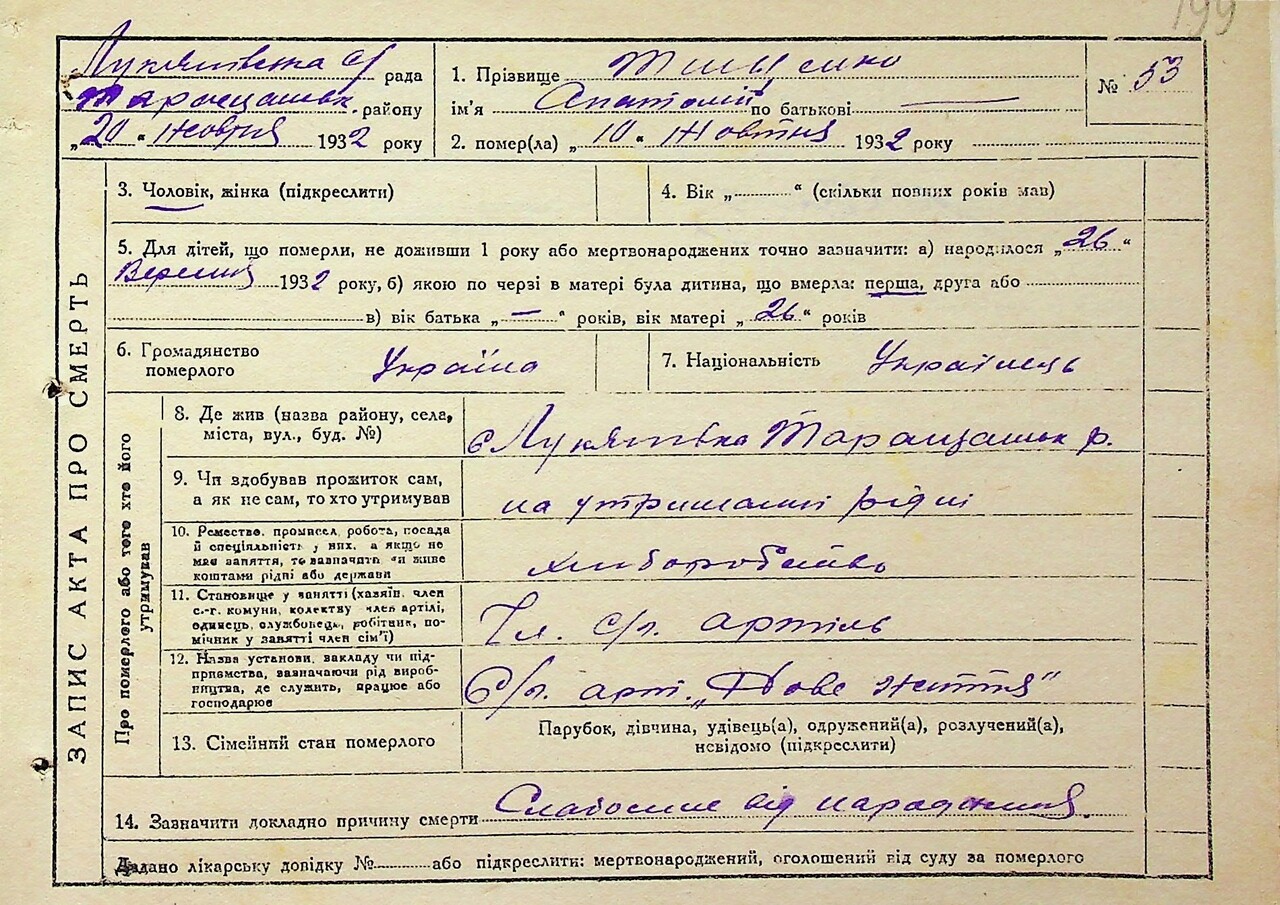 199
Лук'янівська с/ рада
Таращанськ. району
„20“ жовтня 1932 року
1. Прізвище
ім'я Анатолій по батькові —
2. помер(ла) „10“ Жовтня 1932 року
№ 53
ЗАПИС АКТА ПРО СМЕРТЬ
3. Чоловік, жінка (підкреслити)
4. Вік „ “ (скільки повних років мав)
5. Для дітей, що померли, не доживши 1 року або мертвонароджених точно зазначити: а) народилося „26“
Вересня 1932 року, б) якою по черзі в матері була дитина, що вмерла: перша, друга або
в) вік батька „—“ років, вік матері „26“ років
6. Громадянство
померлого
Україна
7. Національність Українець
Про померлого або того хто його
утримував
8. Де жив (назва району, села,
міста, вул., буд. №)
с Лук'янівка Таращанськ р.
9. Чи здобував прожиток сам,
а як не сам, то хто утримував
на утриманні рідні
10. Ремество, промисел, робота, посада
й спеціяльність у них, а якщо не
має заняття, то зазначити чи живе
коштами рідні або держави
хліборобство
11. Становище у занятті (хазяїн, член
с.-г. комуни, колективу член артілі,
одинець, службовець, робітник, по-
мічник у занятті член сім'ї)
Чл. с/г. артіль
12. Назва установи, закладу чи під-
приємства, зазначаючи рід вироб-
ництва, де служить, працює або
господарює
С/г. арт. „Нове життя“
13. Сімейний стан померлого
Парубок, дівчина, удівець(а), одружений(а), розлучений(а),
невідомо (підкреслити)
14. Зазначити докладно причину смерти Слабосиле від народження.
Додано лікарську довідку № або підкреслити: мертвонароджений, оголошений від суду за померлого